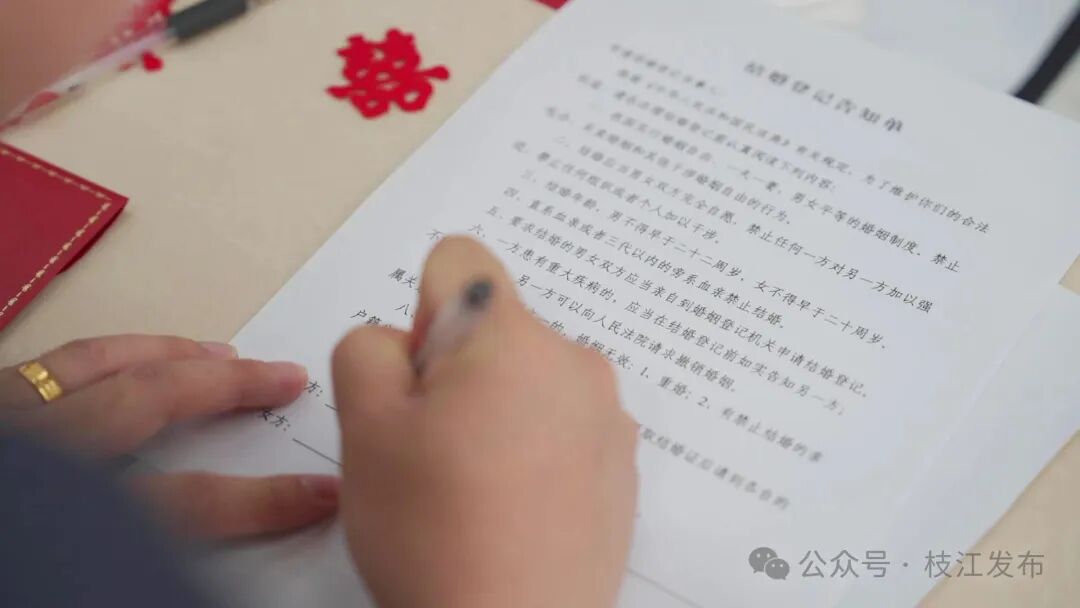 囍
结婚登记告知单
中华人民共和国民法典》有关规定，为了维护你们的合法
权益，请在办理结婚登记前认真阅读下列内容：
一、我国实行婚姻自由、一夫一妻、男女平等的婚姻制度。禁止
买卖婚姻和其他干涉婚姻自由的行为。
二、结婚应当男女双方完全自愿，禁止任何一方对另一方加以强
迫，禁止任何组织或者个人加以干涉。
三、结婚年龄，男不得早于二十二周岁，女不得早于二十周岁。
四、直系血亲或者三代以内的旁系血亲禁止结婚。
五、要求结婚的男女双方应当亲自到婚姻登记机关申请结婚登记。
六、一方患有重大疾病的，应当在结婚登记前如实告知另一方；
不
另一方可以向人民法院请求撤销婚姻。
一的，婚姻无效：1、重婚；2、有禁止结婚的亲
属关
八、
取结婚证后请到各自的
户籍
方：
女方：
公众号·枝江发布